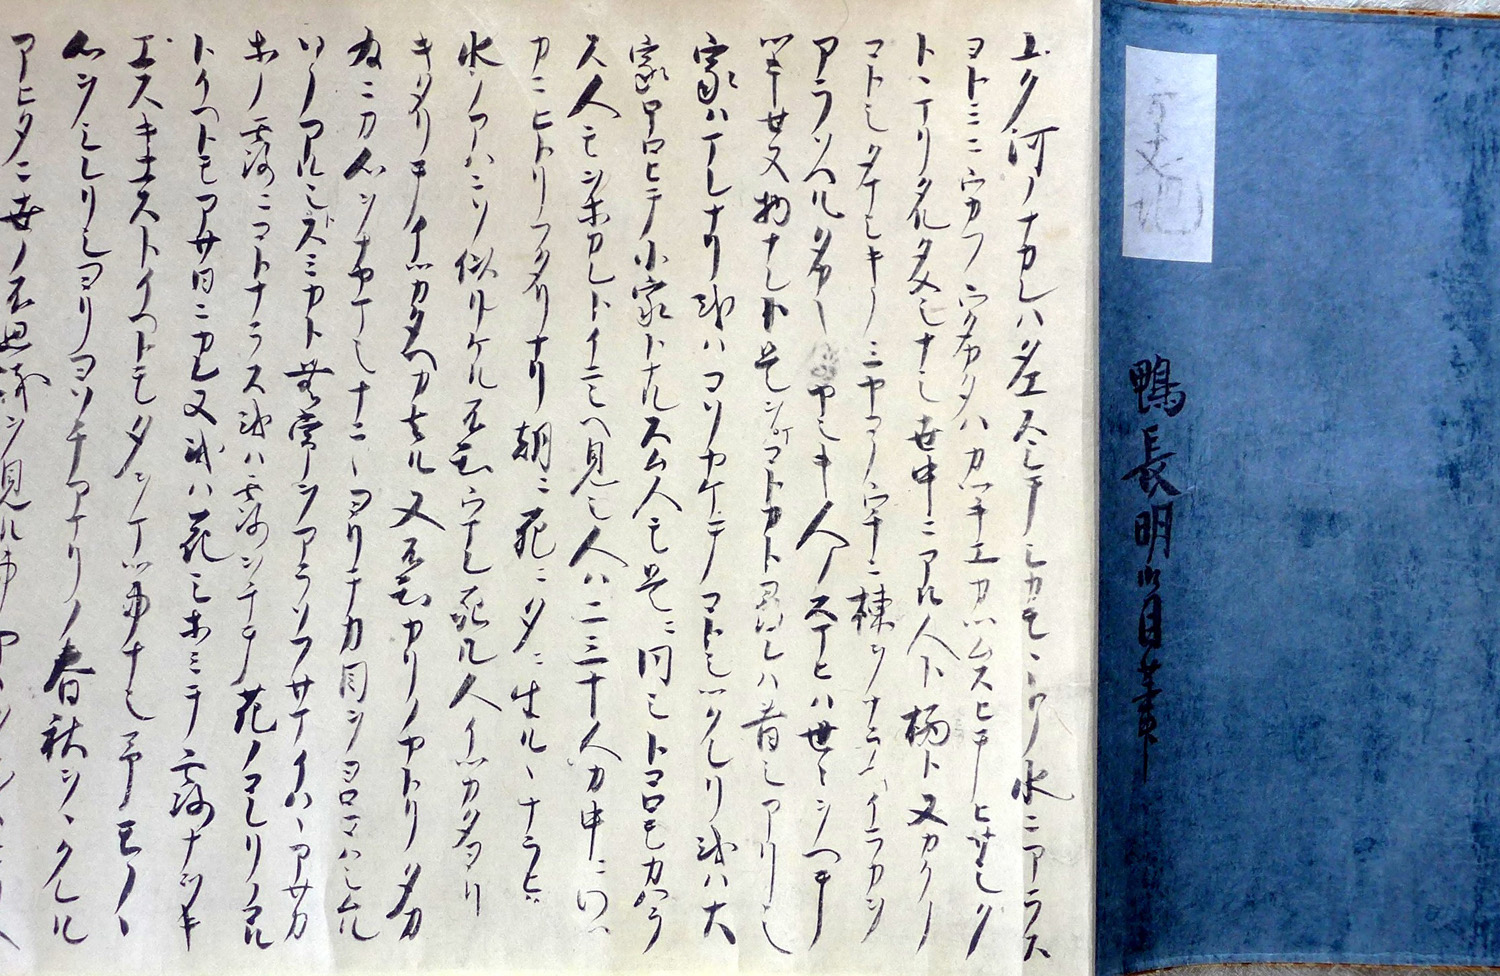 ユク河ノナカレハタエスシテシカモヽトノ水ニアラス
ヨトミニウカフウタカタハカツキエカツムスヒテヒサシク
トヽマリタルタメシナシ世中ニアル人ト栖ト又カクノ
コトシタマシキノミヤコノウチニ棟ヲナラヘイラカヲ
アラソヘルタカキイヤシキ人ノスマヒハ世々ヲヘテ
ツキセヌ物ナレト是ヲマコトカト尋レハ昔シアリシ
家ハマレナリ或ハコソヤケテコトシツクレリ或ハ大
家ホロヒテ小家トナルスム人モ是ニ同シトコロモカハラ
ス人モヲホカレトイニシヘ見シ人ハ二三十人カ中ニワツ
カニヒトリフタリナリ朝ニ死ニ夕ニ生ルヽナラヒ
水ノアハニソ似リケル不知ウマレ死ル人イツカタヨリ
キタリテイツカタヘカ去ル又不知カリノヤトリタカ
為ニカ心ヲナヤマシナニヽヨリテカ目ヲヨロコハシムル
ソノアルシトスミカト無常ヲアラソフサマイハヽアサカ
ホノ露ニコトナラス或ハ露ヲチテ花ノコレリノコル
トイヘトモアサ日ニカレヌ或ハ花シホミテ露ナヲキ
エスキエストイヘトモ夕ヲマツ事ナシ予モノヽ
心ヲシレリシヨリヨソチアマリノ春秋ヲヽクレル
アヒタニ世ノ不思議ヲ見ル事
方丈記
鴨長明自筆